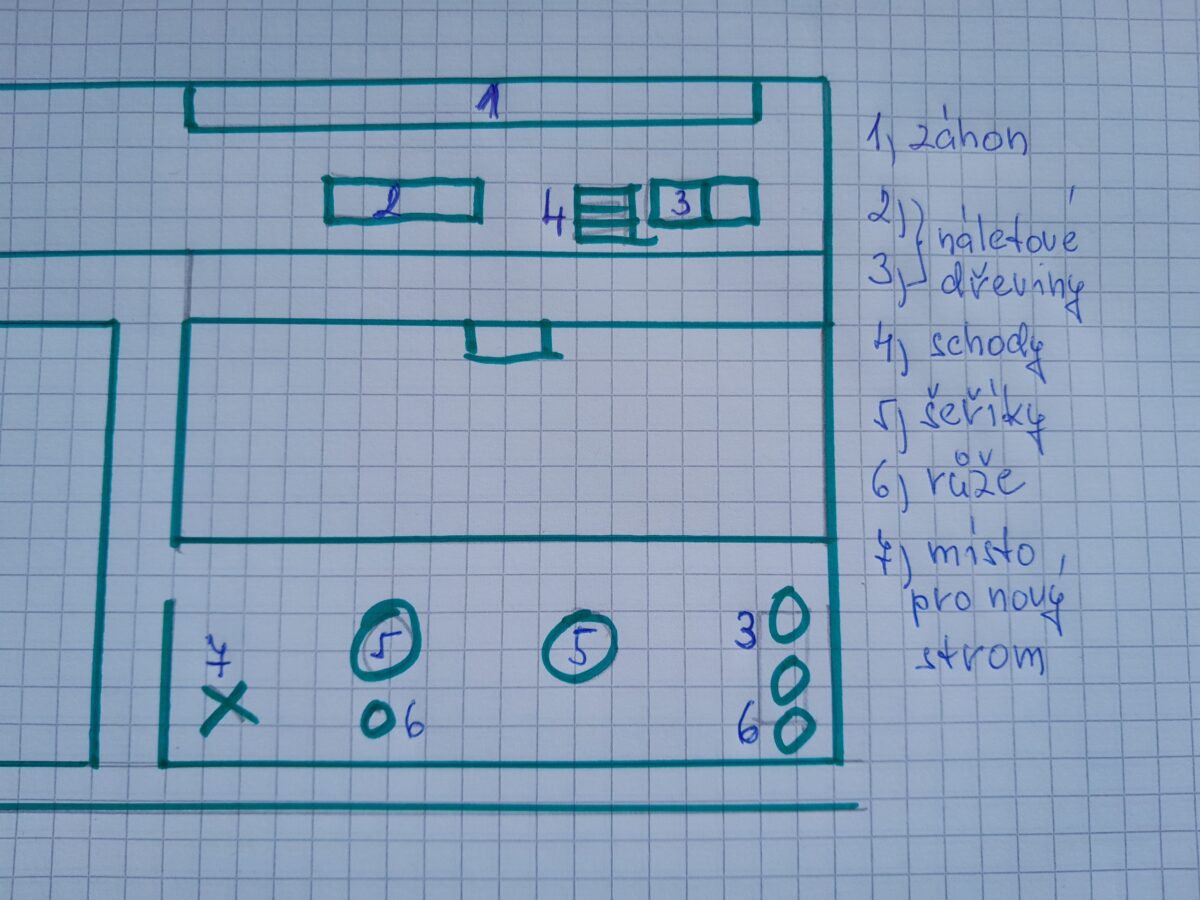 1
2
4
3
7
5
5
3
6
6
1, záhon
2,
3, náletové
dřeviny
4, schody
5, šeříky
6, růže
7, místo
pro nový
strom